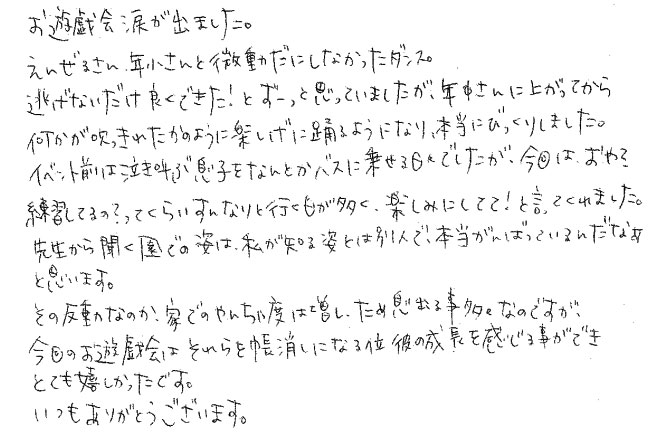 お遊戯会涙が出ました。
えんぜるさん、年小さんと微動だにしなかったダンス。
逃げないだけ良くできた!とずーっと思っていましたが、年中さんに上がってから
何かが吹っきれたかのように楽しげに踊るようになり、本当にびっくりしました。
イベント前は泣き叫ぶ息子をなんとかバスに乗せる日々でしたが、今回は、おやっ?
練習してるの?ってくらいすんなりと行く日が多く、楽しみにしてて!と言ってくれました。
先生から聞く園での姿は、私が知る姿とは別人で、本当がんばっているんだなぁ
と思います。
その反動なのか、家でのやんちゃ度は増し、ため息出る事多々なのですが、
今回のお遊戯会はそれらを帳消しになる位 彼の成長を感じる事ができ
とても嬉しかったです。
いつもありがとうございます。